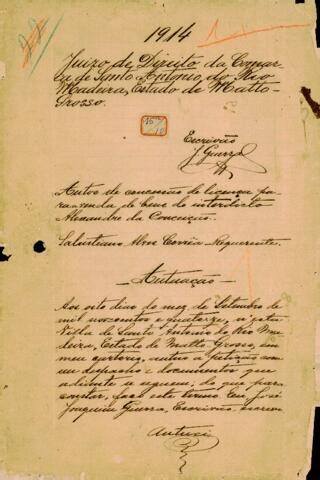 1914
Juizo de Direito da Comar-
ca de Santo Antonio do Rio
Madeira, Estado de Matto-
Grosso.
Escrivão
J. Guerra
Autos de concessão de licença pa-
ra venda de bens do interdicto
Alexandre da Conceição.
Salustiano Alves Corrêa - Requerente.
Autuação
Aos oito dias do mez de Setembro de
mil novecentos e quatorze, n'esta
Villa de Santo Antonio do Rio Ma-
deira, Estado de Matto Grosso, em
meu cartorio, autúo a petição com
um despacho e documentos que
adiante se seguem; do que para
constar, faço este termo. Eu, José
Joaquim Guerra, Escrivão, escrevi
Autuei